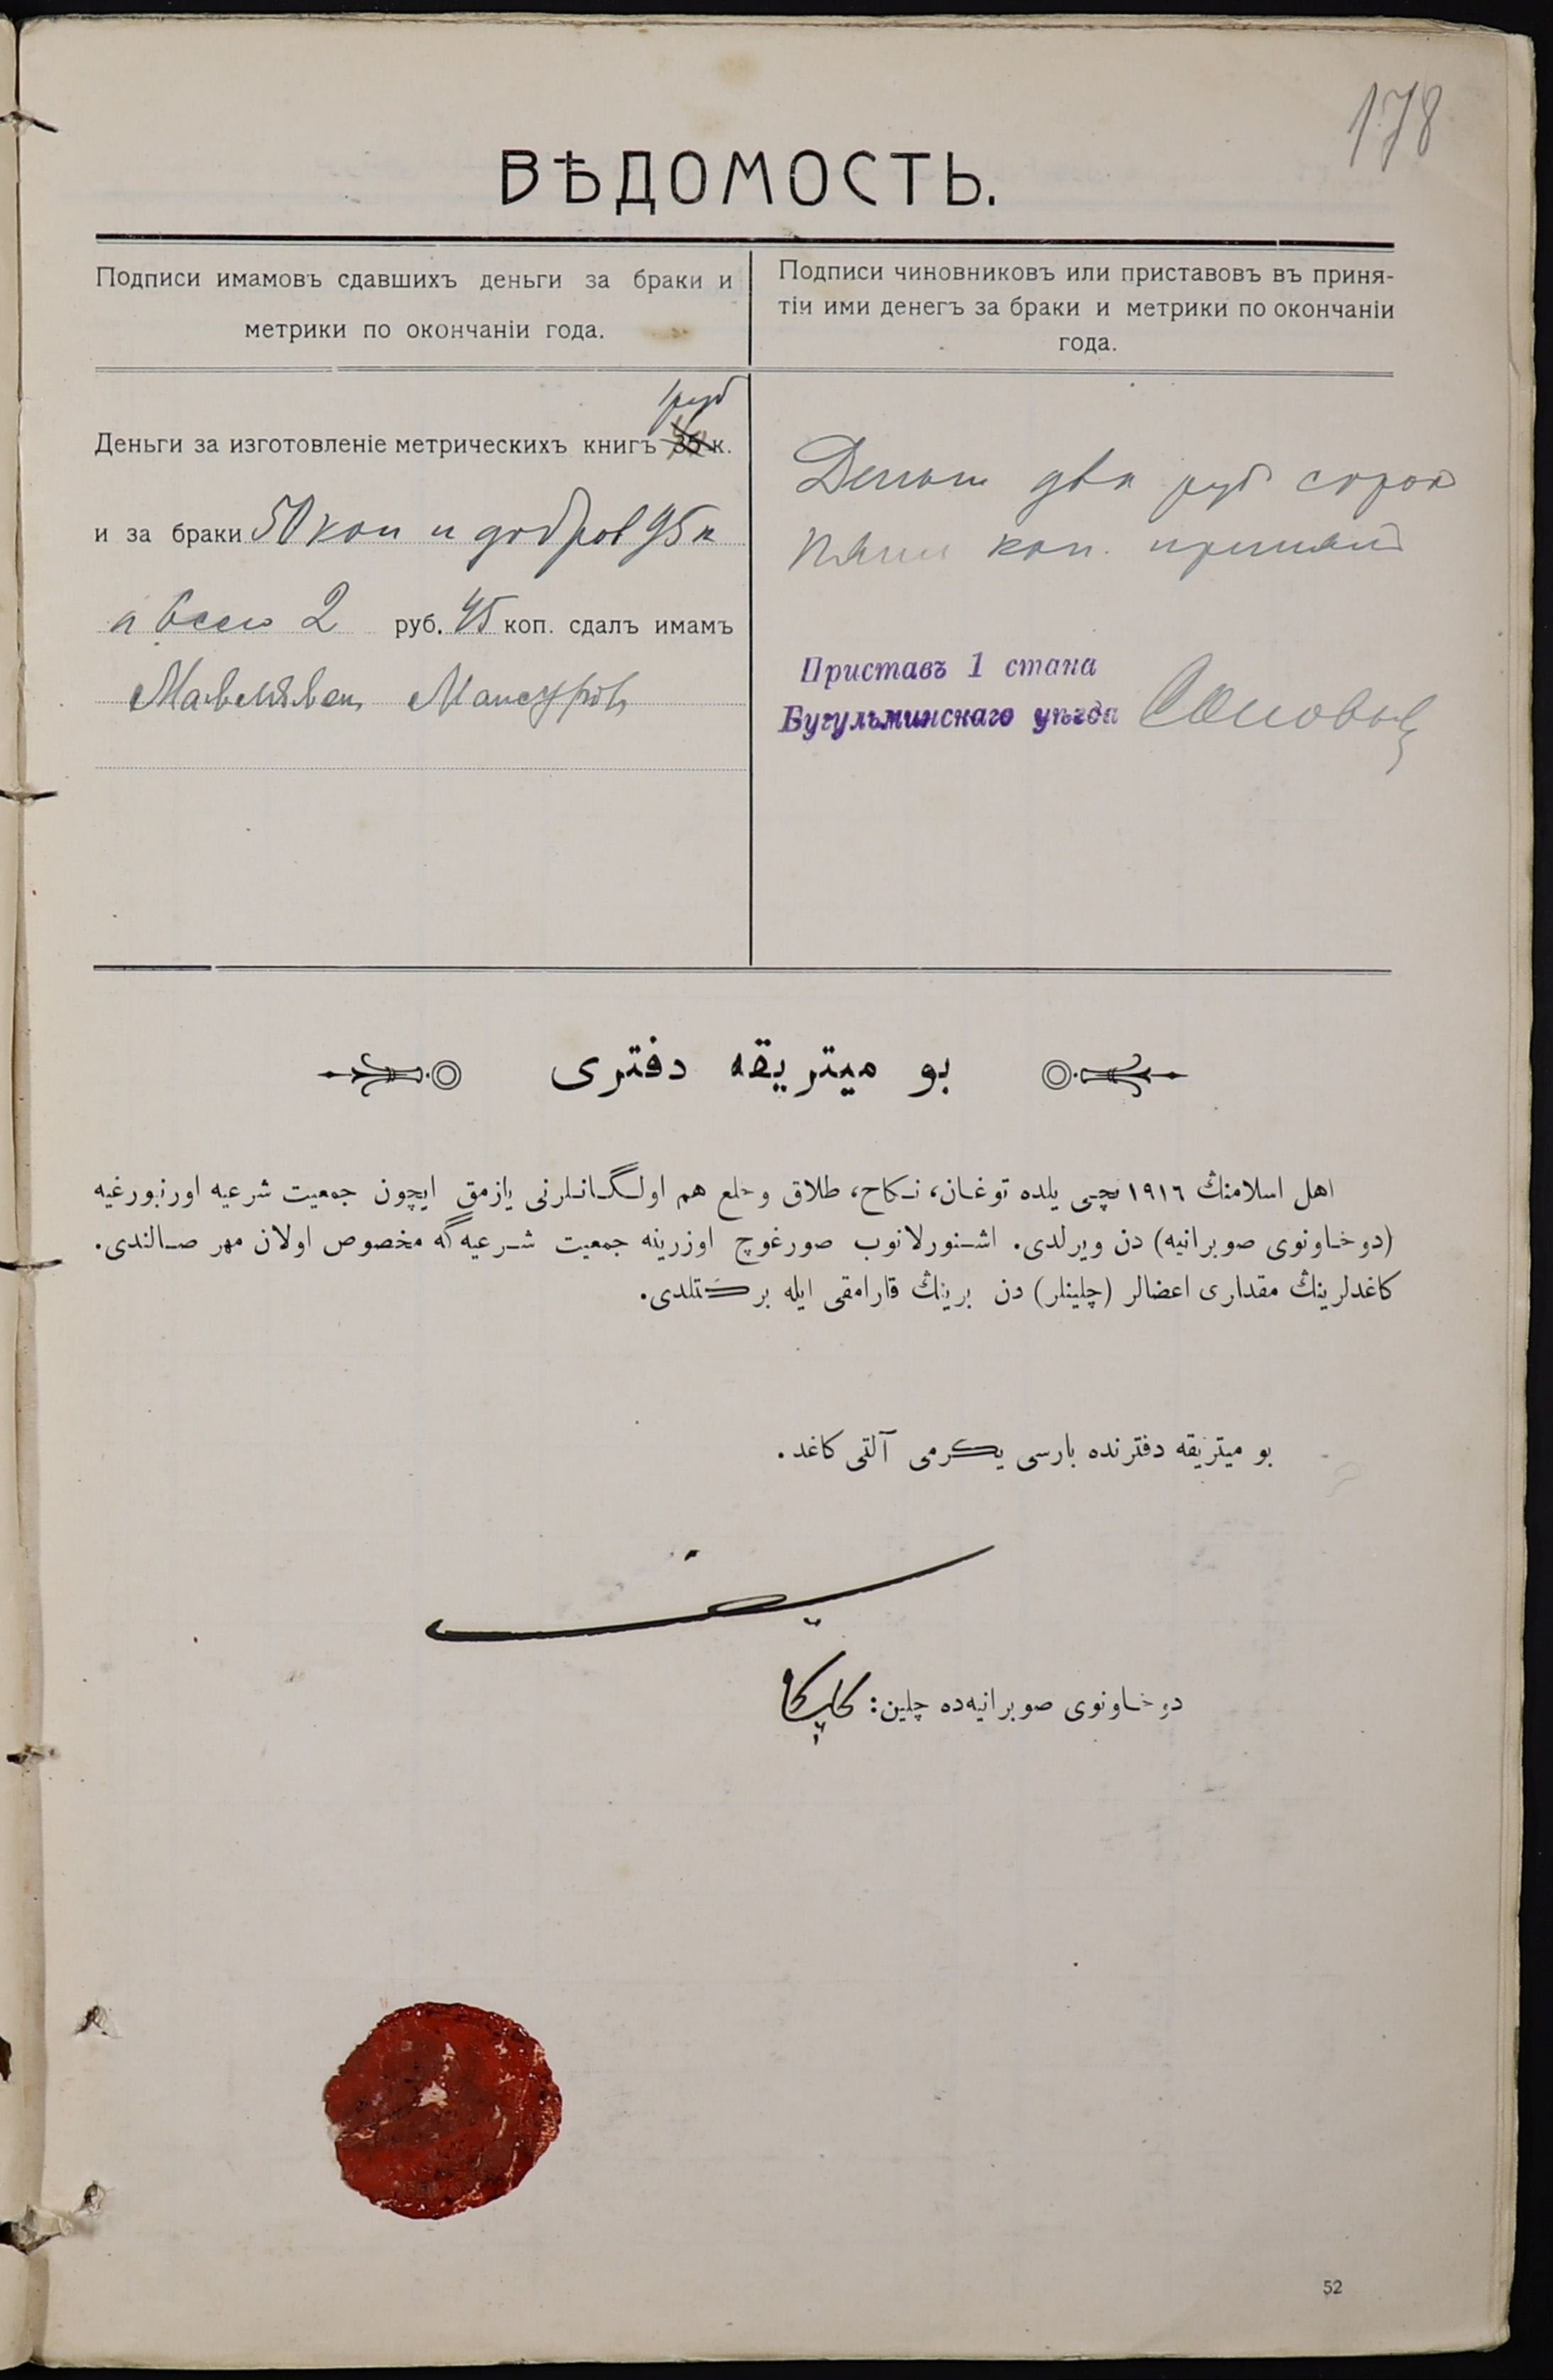 178
ВѢДОМОСТЬ.
Подписи имамовъ сдавшихъ деньги за браки и
метрики по окончаніи года.
Подписи чиновниковъ или приставовъ въ приня-
тіи ими денегъ за браки и метрики по окончаніи
года.
1 руб
Деньги за изготовленіе метрическихъ книгъ 35 к.
и за браки 50 коп и 95 к
а всего 2 руб. 45 коп. сдалъ имамъ
Мансуровъ
Деньги два руб сорок
пять коп. принялъ
Приставъ 1 стана
Бугульминскаго уѣзда
بو ميتريقه دفترى
اهل اسلامنڭ ١٩١٦ نچى يلده توغان، نكاح، طلاق وخلع هم اولگانلرنى يازمق ايچون جمعيت شرعيه اورنبورغيه
(دوخاونوى صوبرانيه) دن ويرلدى. اشنورلانوب صورغوچ اوزرينه جمعيت شرعيه گه مخصوص اولان مهر صالندى.
كاغدلرينڭ مقدارى اعضالر (چلينلر) دن برينڭ قارامقى ايله بركتلدى.
بو ميتريقه دفترنده بارسى يكرمى آلتى كاغد.
دوخاونوى صوبرانيه‌ده چلين:
52